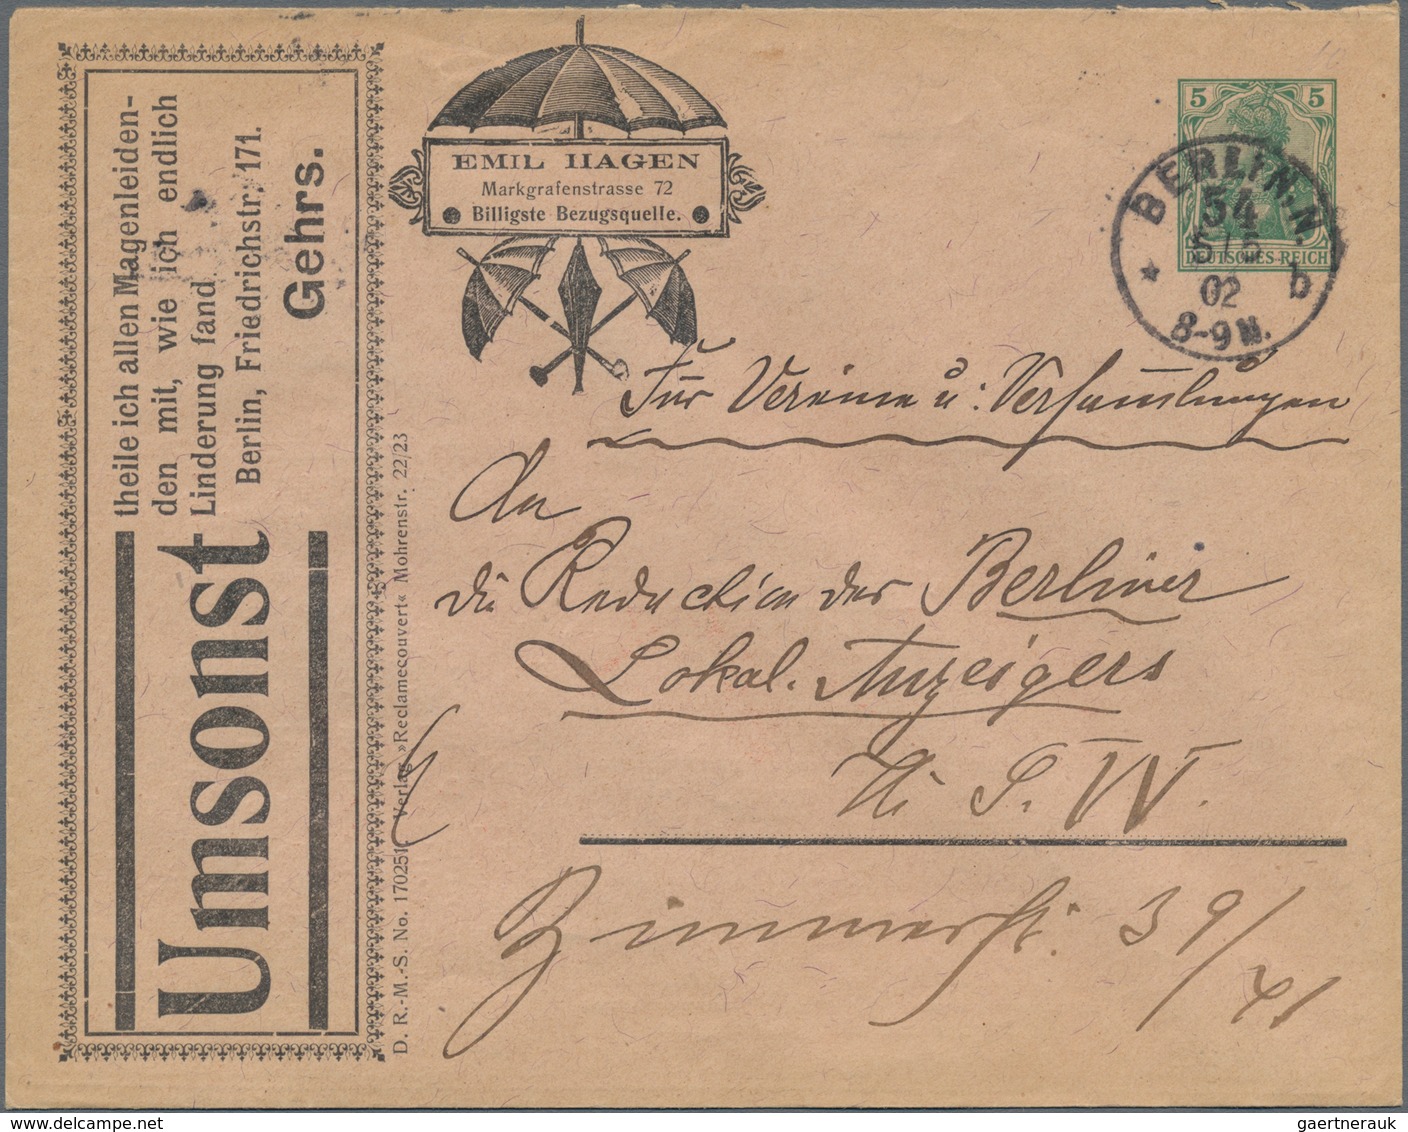 Umsonst
theile ich allen Magenleiden-
den mit, wie ich endlich
Linderung fand
Berlin, Friedrichstr. 171.
Gehrs.
D. R.-M.-S. No. 170251 Verlag »Reclamecouvert« Mohrenstr. 22/23
EMIL HAGEN
Markgrafenstrasse 72
Billigste Bezugsquelle.
5 5
DEUTSCHES REICH
BERLIN, N.
54
5/5
02
8-9 N.
* b
Für Vereine u: Versammlungen
An
die Redaction des Berliner
Lokal. Anzeigers
S. W.
Zimmerstr. 39/41
gaertnerauk